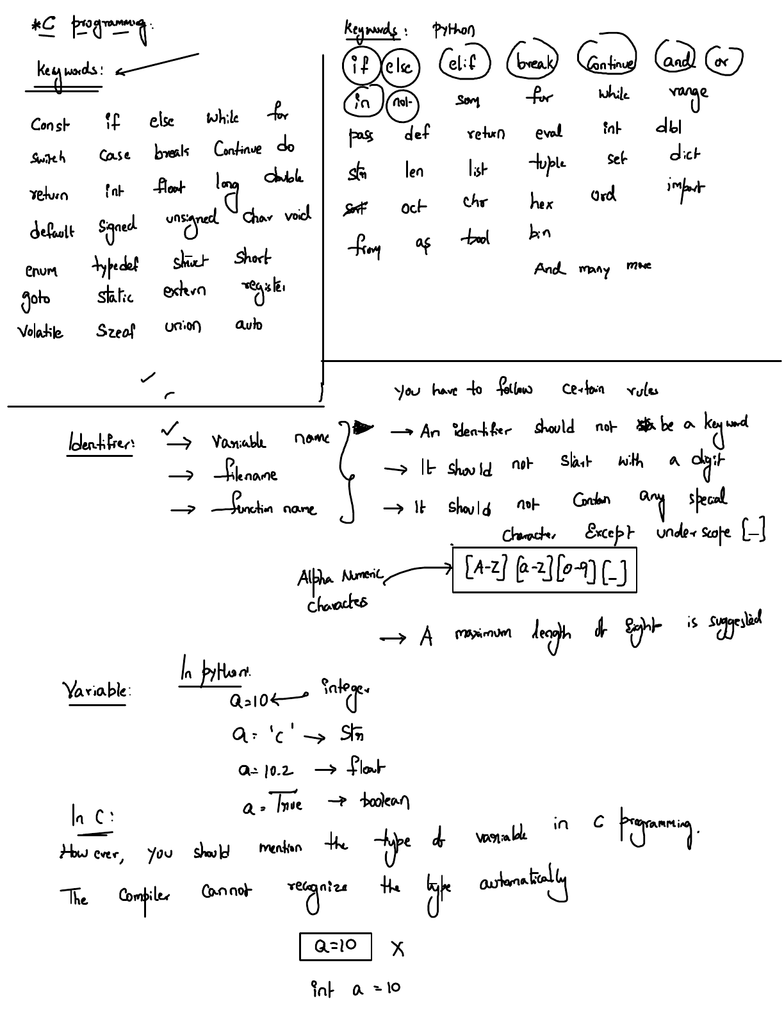 *C programming:
Keywords:
Const if else while for
switch case break Continue do
return int float long double
default signed unsigned char void
enum typedef struct short
goto static extern register
Volatile Sizeof union auto
Keywords: python
if else elif break Continue and or
in not for while range
pass def return eval int dbl
str len list tuple set dict
oct chr hex ord import
from as bool bin
And many more
You have to follow certain rules
Identifier: → Variable name → An identifier should not be a keyword
→ filename → It should not start with a digit
→ function name → It should not Contain any special
Character Except under scope [_]
Alpha Numeric [A-Z] [a-z] [0-9] [_]
Characters
→ A maximum length of Eight is suggested
Variable: In python:
a=10 ← integer
a = 'c' → str
a=10.2 → float
a = True → boolean
In C:
However, you should mention the type of variable in C programming.
The Compiler Cannot recognize the type automatically
a=10 X
int a = 10